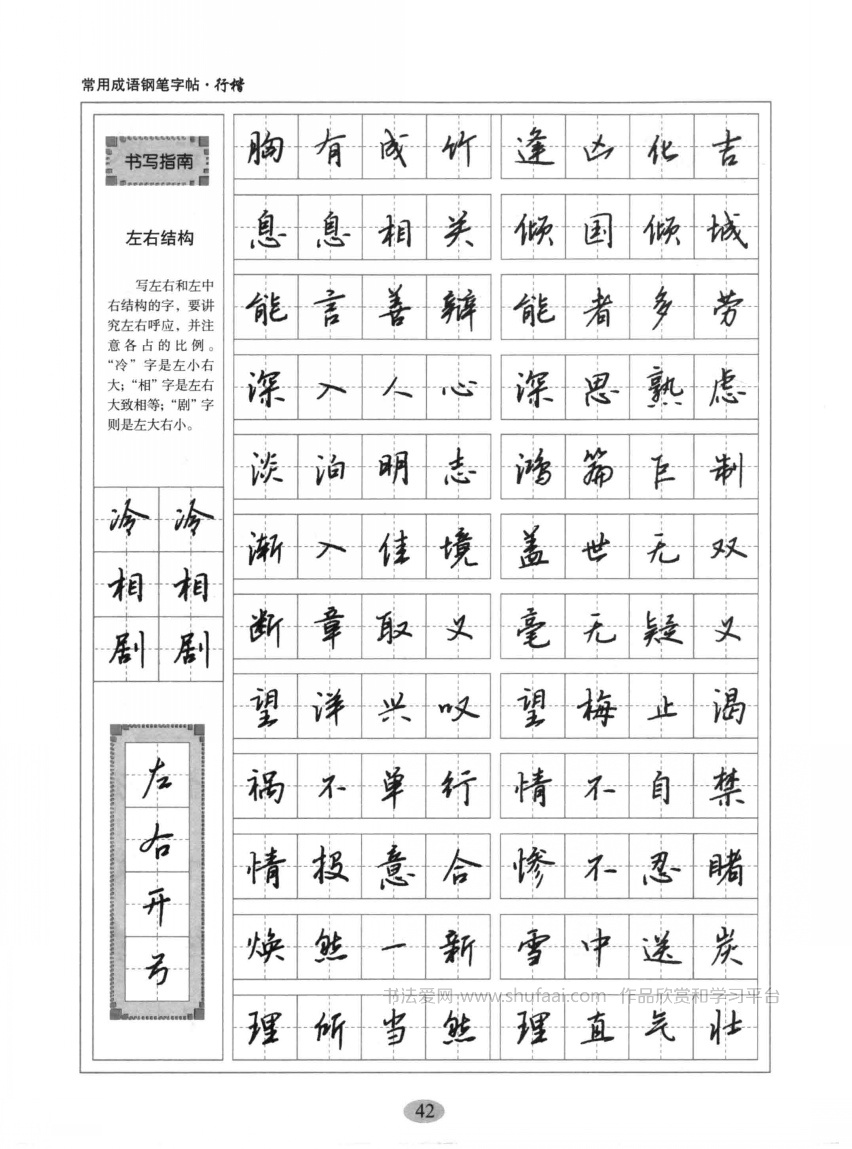 常用成语钢笔字帖·行楷
书写指南
左右结构
写左右和左中
右结构的字，要讲
究左右呼应，并注
意各占的比例。
“冷”字是左小右
大；“相”字是左右
大致相等；“剧”字
则是左大右小。
冷冷
相相
剧剧
左
右
开
弓
胸有成竹 逢凶化吉
息息相关 倾国倾城
能言善辩 能者多劳
深入人心 深思熟虑
淡泊明志 鸿篇巨制
渐入佳境 盖世无双
断章取义 毫无疑义
望洋兴叹 望梅止渴
祸不单行 情不自禁
情投意合 惨不忍睹
焕然一新 雪中送炭
书法爱网 www.shufaai.com 作品欣赏和学习平台
理所当然 理直气壮
42